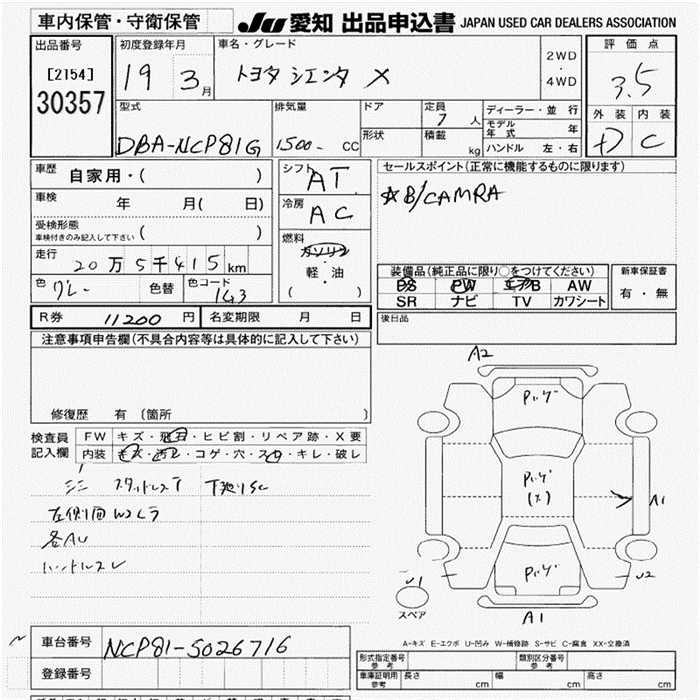 車内保管・守衛保管
JU 愛知 出品申込書 JAPAN USED CAR DEALERS ASSOCIATION
出品番号
[2154]
30357
初度登録年月
19 3月
車名・グレード
トヨタ シエンタ X
2WD
・
4WD
評価点
3.5
外装 内装
D C
型式
DBA-NCP81G
排気量
1500 CC
ドア
形状
定員
7 人
積載
kg
ディーラー・並行
モデル年式 年
ハンドル 左・右
車歴
自家用・( )
車検
年 月( 日)
受検形態
車検付きのみ記入して下さい ( )
走行
20万5千415km
色
グレー
色替
色コード
1G3
シフト
AT
冷房
AC
燃料
ガソリン
・
軽・油
( )
セールスポイント(正常に機能するものに限ります)
☆B/CAMRA
装備品(純正品に限り○をつけてください)
PS PW エアB AW
SR ナビ TV カワシート
新車保証書
有・無
後日品
R券 11200 円
名変期限 月 日
注意事項申告欄(不具合内容等は具体的に記入して下さい)
修復歴 有 〔箇所 〕
検査員
記入欄
FW キズ・飛石・ヒビ割・リペア跡・X要
内装 キズ・汚レ・コゲ・穴・スレ・キレ・破レ
下廻りSC
左側面W2くラ
各AU
ハンドルスレ
A2
Pハゲ
Pハゲ
(大)
A1
Pハゲ
U1
U2
スペア
A1
A-キズ E-エクボ U-凹み W-補修跡 S-サビ C-腐食 XX-交換済
車台番号
NCP81-5026716
登録番号
形式指定番号
参考
類別区分番号
参考
車庫証明用
参考
長さ cm 幅 cm 高さ cm